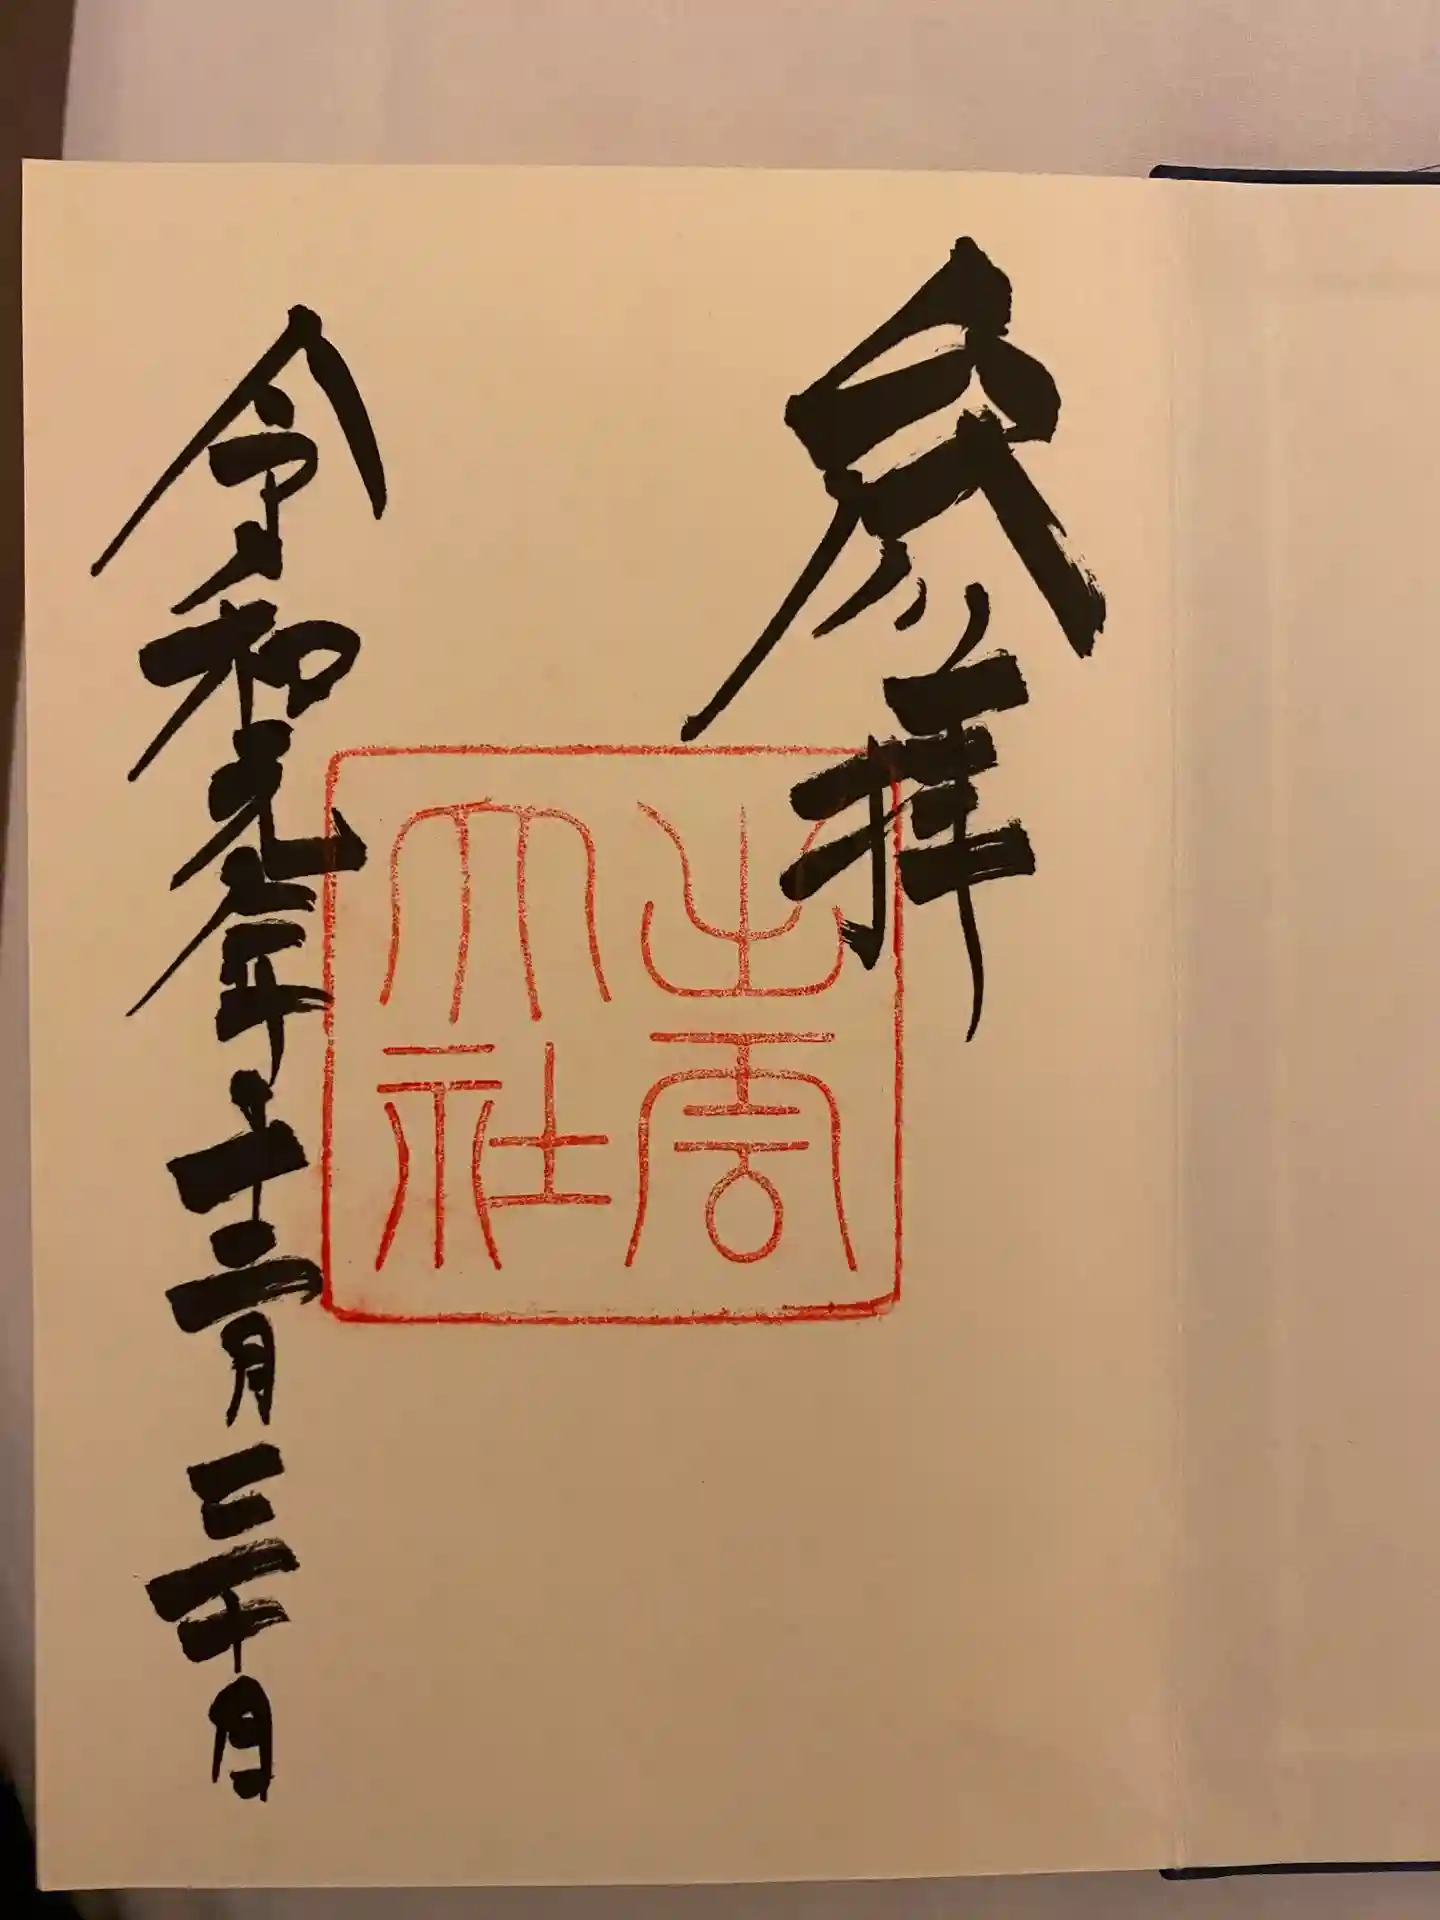 参拝
出雲大社
令和元年十二月三十日